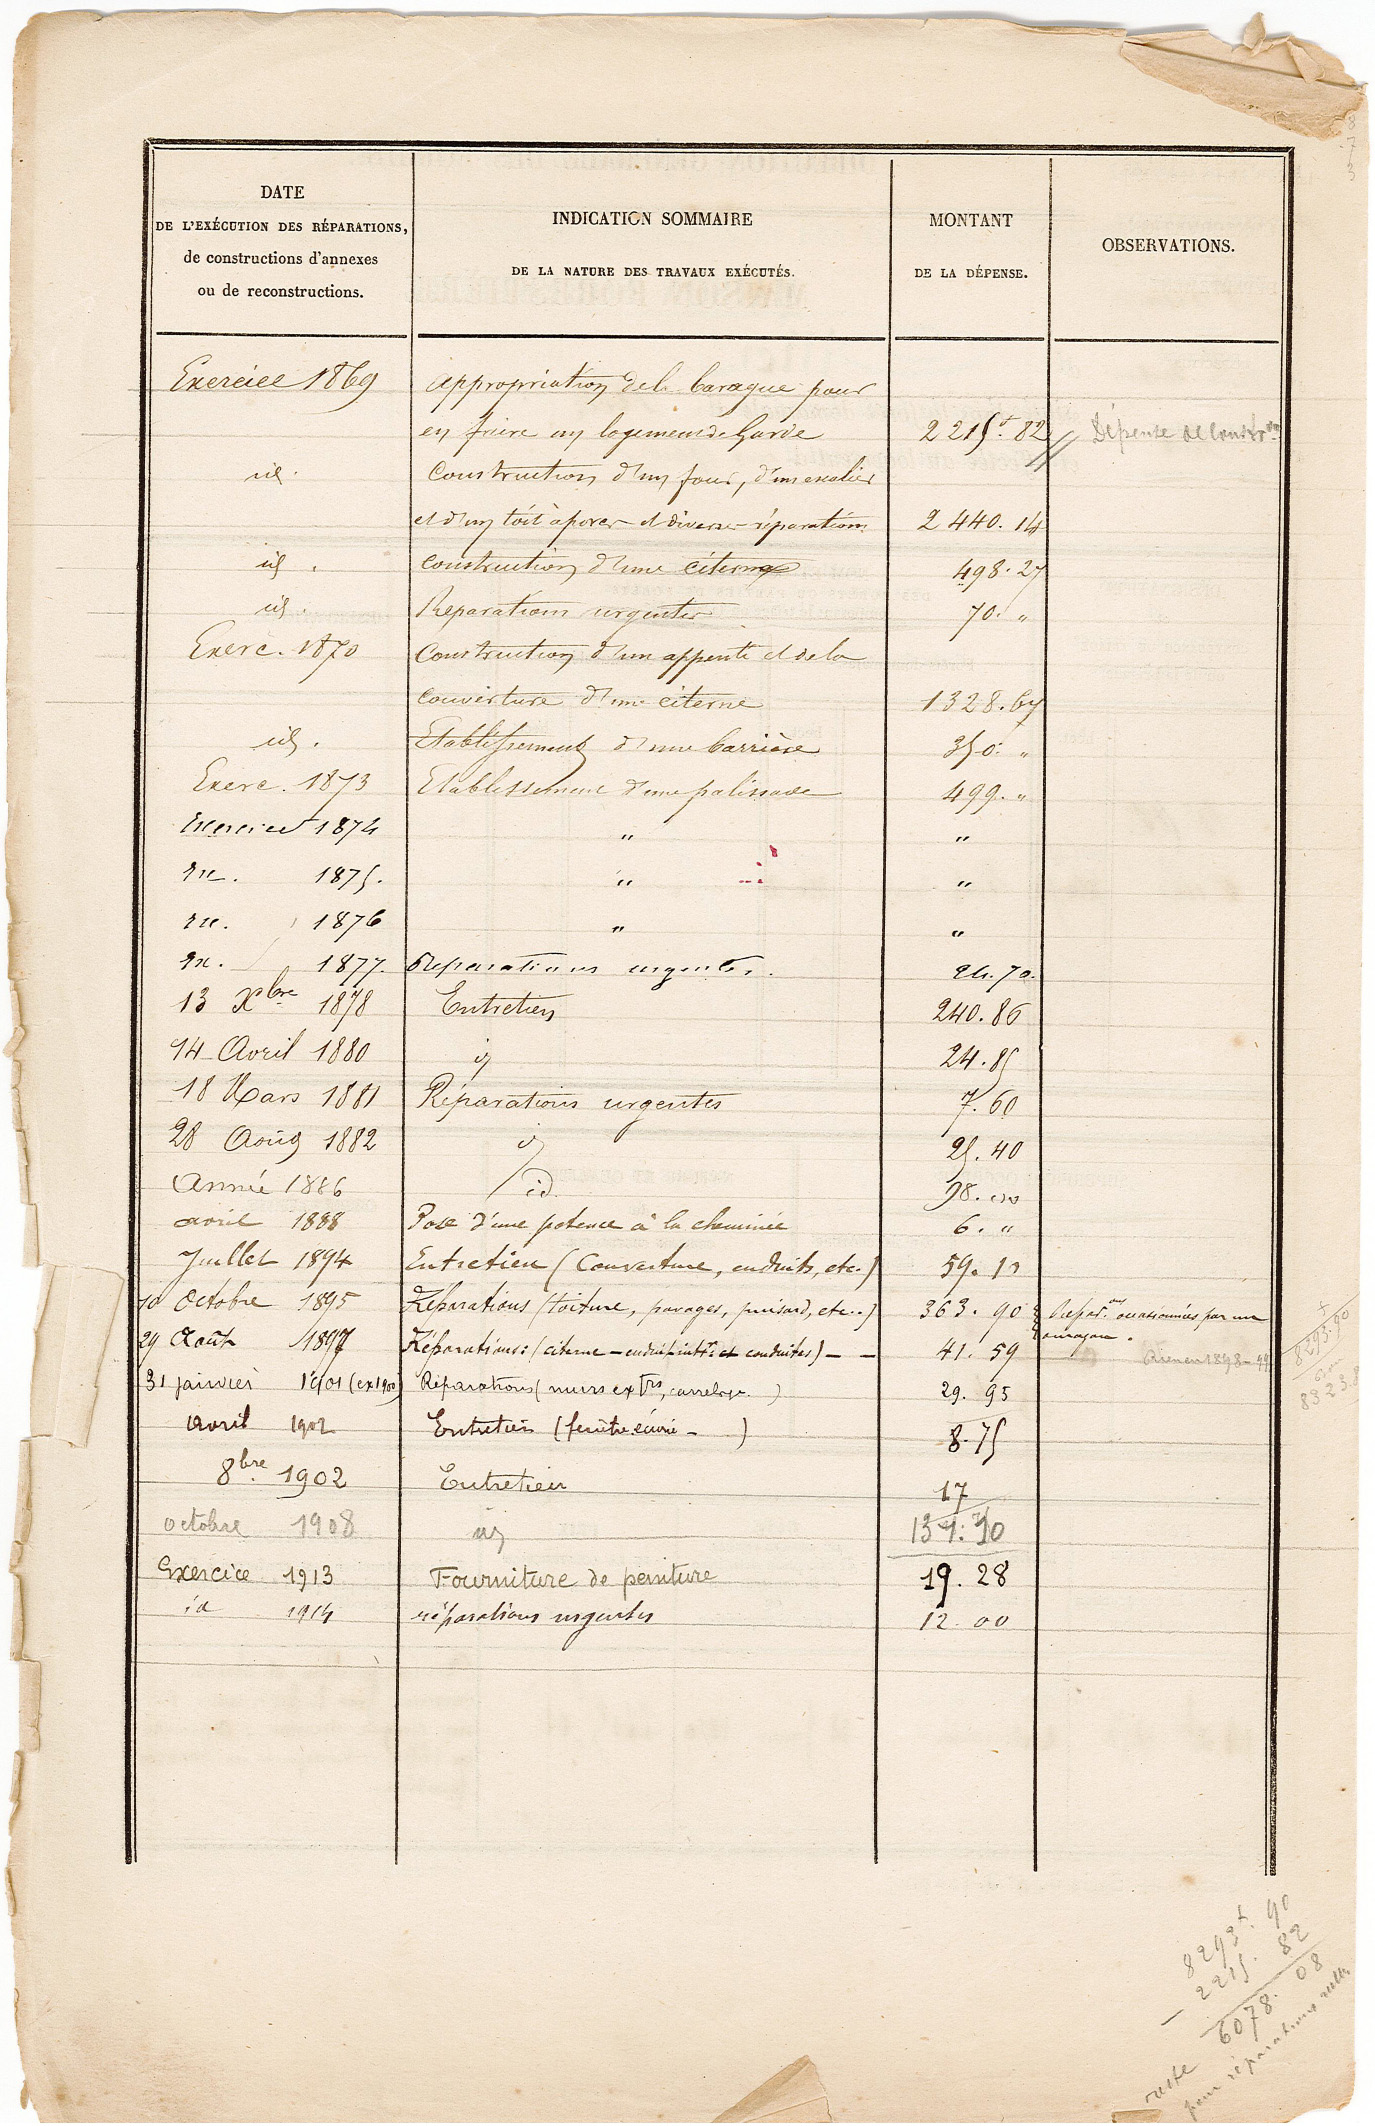 DATE
DE L'EXÉCUTION DES RÉPARATIONS,
de constructions d'annexes
ou de reconstructions.
INDICATION SOMMAIRE
DE LA NATURE DES TRAVAUX EXÉCUTÉS.
MONTANT
DE LA DÉPENSE.
OBSERVATIONS.
Exercice 1869 appropriation de la baraque pour
en faire un logement de Garde 2215f. 82 Dépense de Constron
id. Construction d'un four, d'un escalier
et d'un toit à porcs et diverses réparations 2440. 14
id. Construction d'une citerne 498. 27
id. Réparations urgentes 70. "
Exerc. 1870 Construction d'un appenti et de la
couverture d'une citerne 1328. 67
id. Etablissement d'une barrière 350. "
Exerc. 1873 Etablissement d'une palissade 499. "
Exercice 1874 " "
Ex. 1875. " "
Ex. 1876 " "
Ex. 1877. Réparations urgentes. 24. 70.
13 Xbre 1878 Entretien 240. 86
14 Avril 1880 id 24. 85
18 Mars 1881 Réparations urgentes 7. 60
28 Août 1882 id 25. 40
Année 1886 id.
avril 1888 Pose d'une potence à la cheminée 6. "
Juillet 1894 Entretien (Couverture, enduits, etc.)
10 Octobre 1895 Réparations (toiture, pavages, puisard, etc..) 363. 90 Réparons occasionnées par un
ouragan.
29 Août 1897 Réparations: (citerne - enduit intr et conduites) - - 41. 59
Rien en 1898-99
31 janvier 1901 (ex 1900) Réparations (murs extrs, carrelage ) 29. 95
Avril 1902 Entretien (fenêtre ) 8. 75
8bre 1902 Entretien 17
octobre 1908 id
Exercice 1913 Fourniture de peinture 19. 28
id 1914 réparations urgentes 12. 00
8293. 90
8323. 8
8293f. 90
- 2215. 82
reste 6078. 08
pour réparations